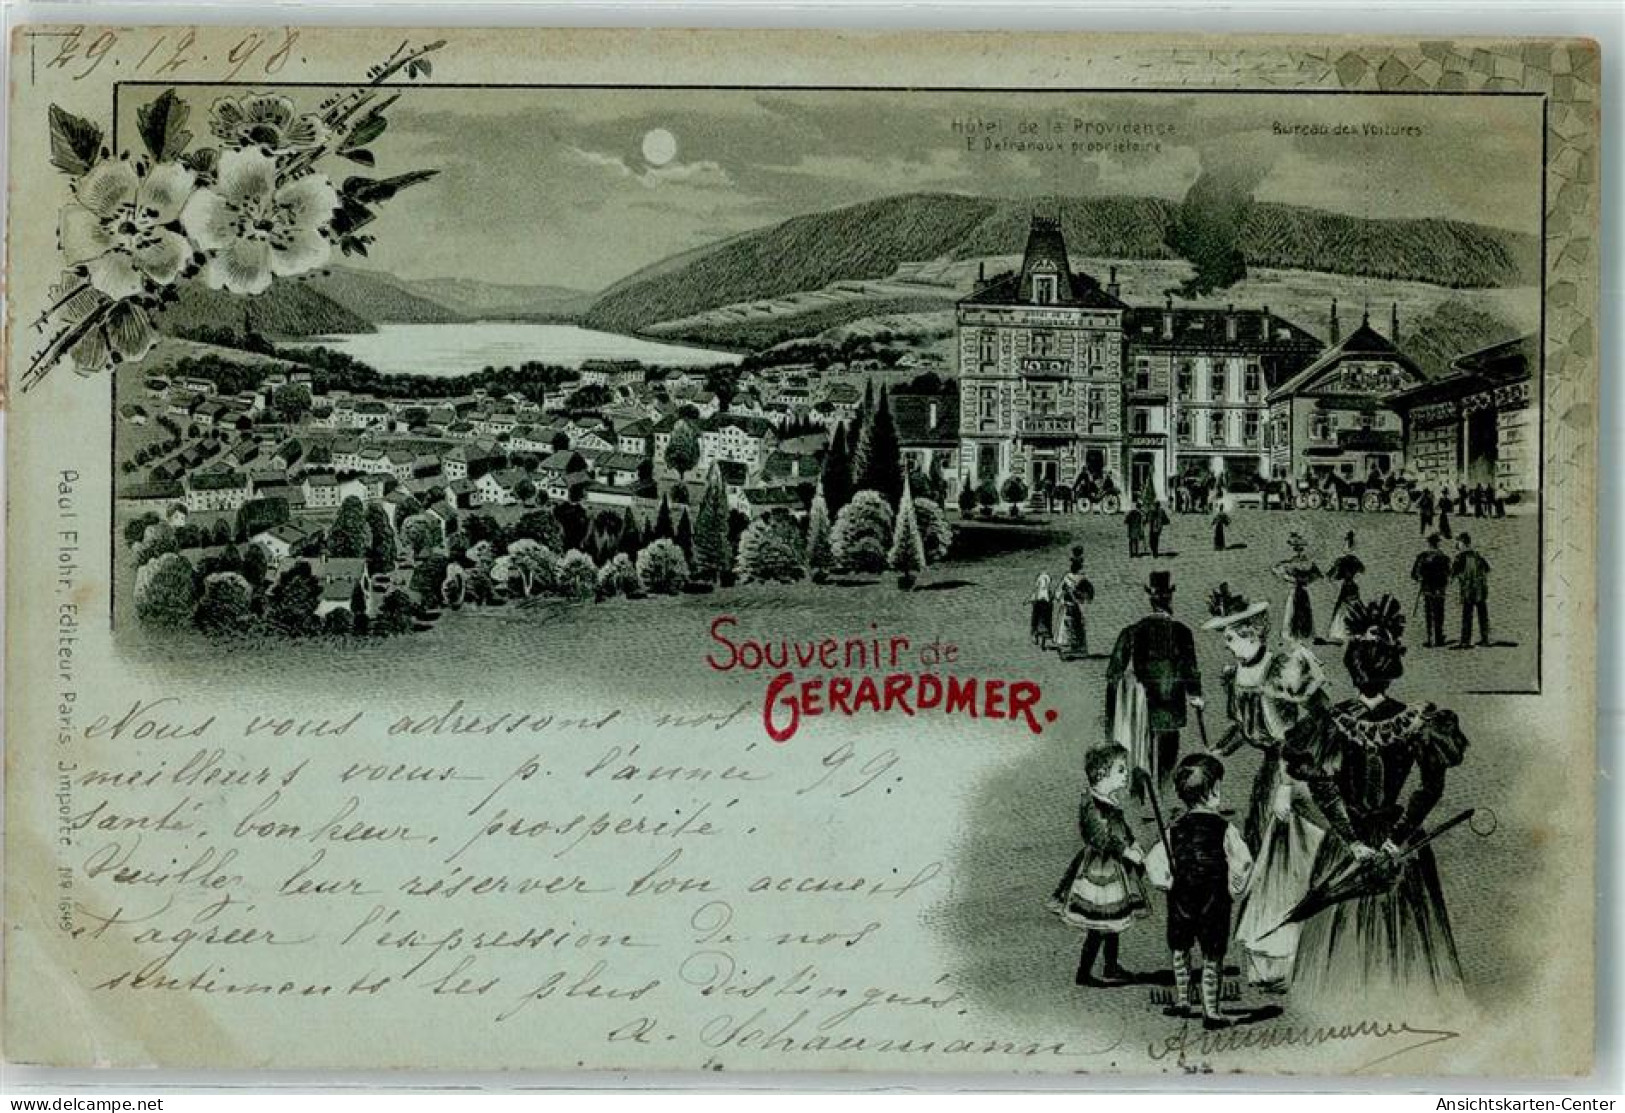 29.12.98.
Hôtel de la Providence
E. Defranoux propriétaire
Bureau des Voitures
Souvenir de
GERARDMER.
Paul Flohr, Editeur Paris Importé № 1649
Nous vous adressons nos
meilleurs voeux p. l'année 99.
santé, bonheur, prospérité.
Veuille leur réserver bon accueil
et agréer l'expression de nos
sentiments les plus distingués.
A. Schaumann
ANSICHTSKARTEN-CENTER